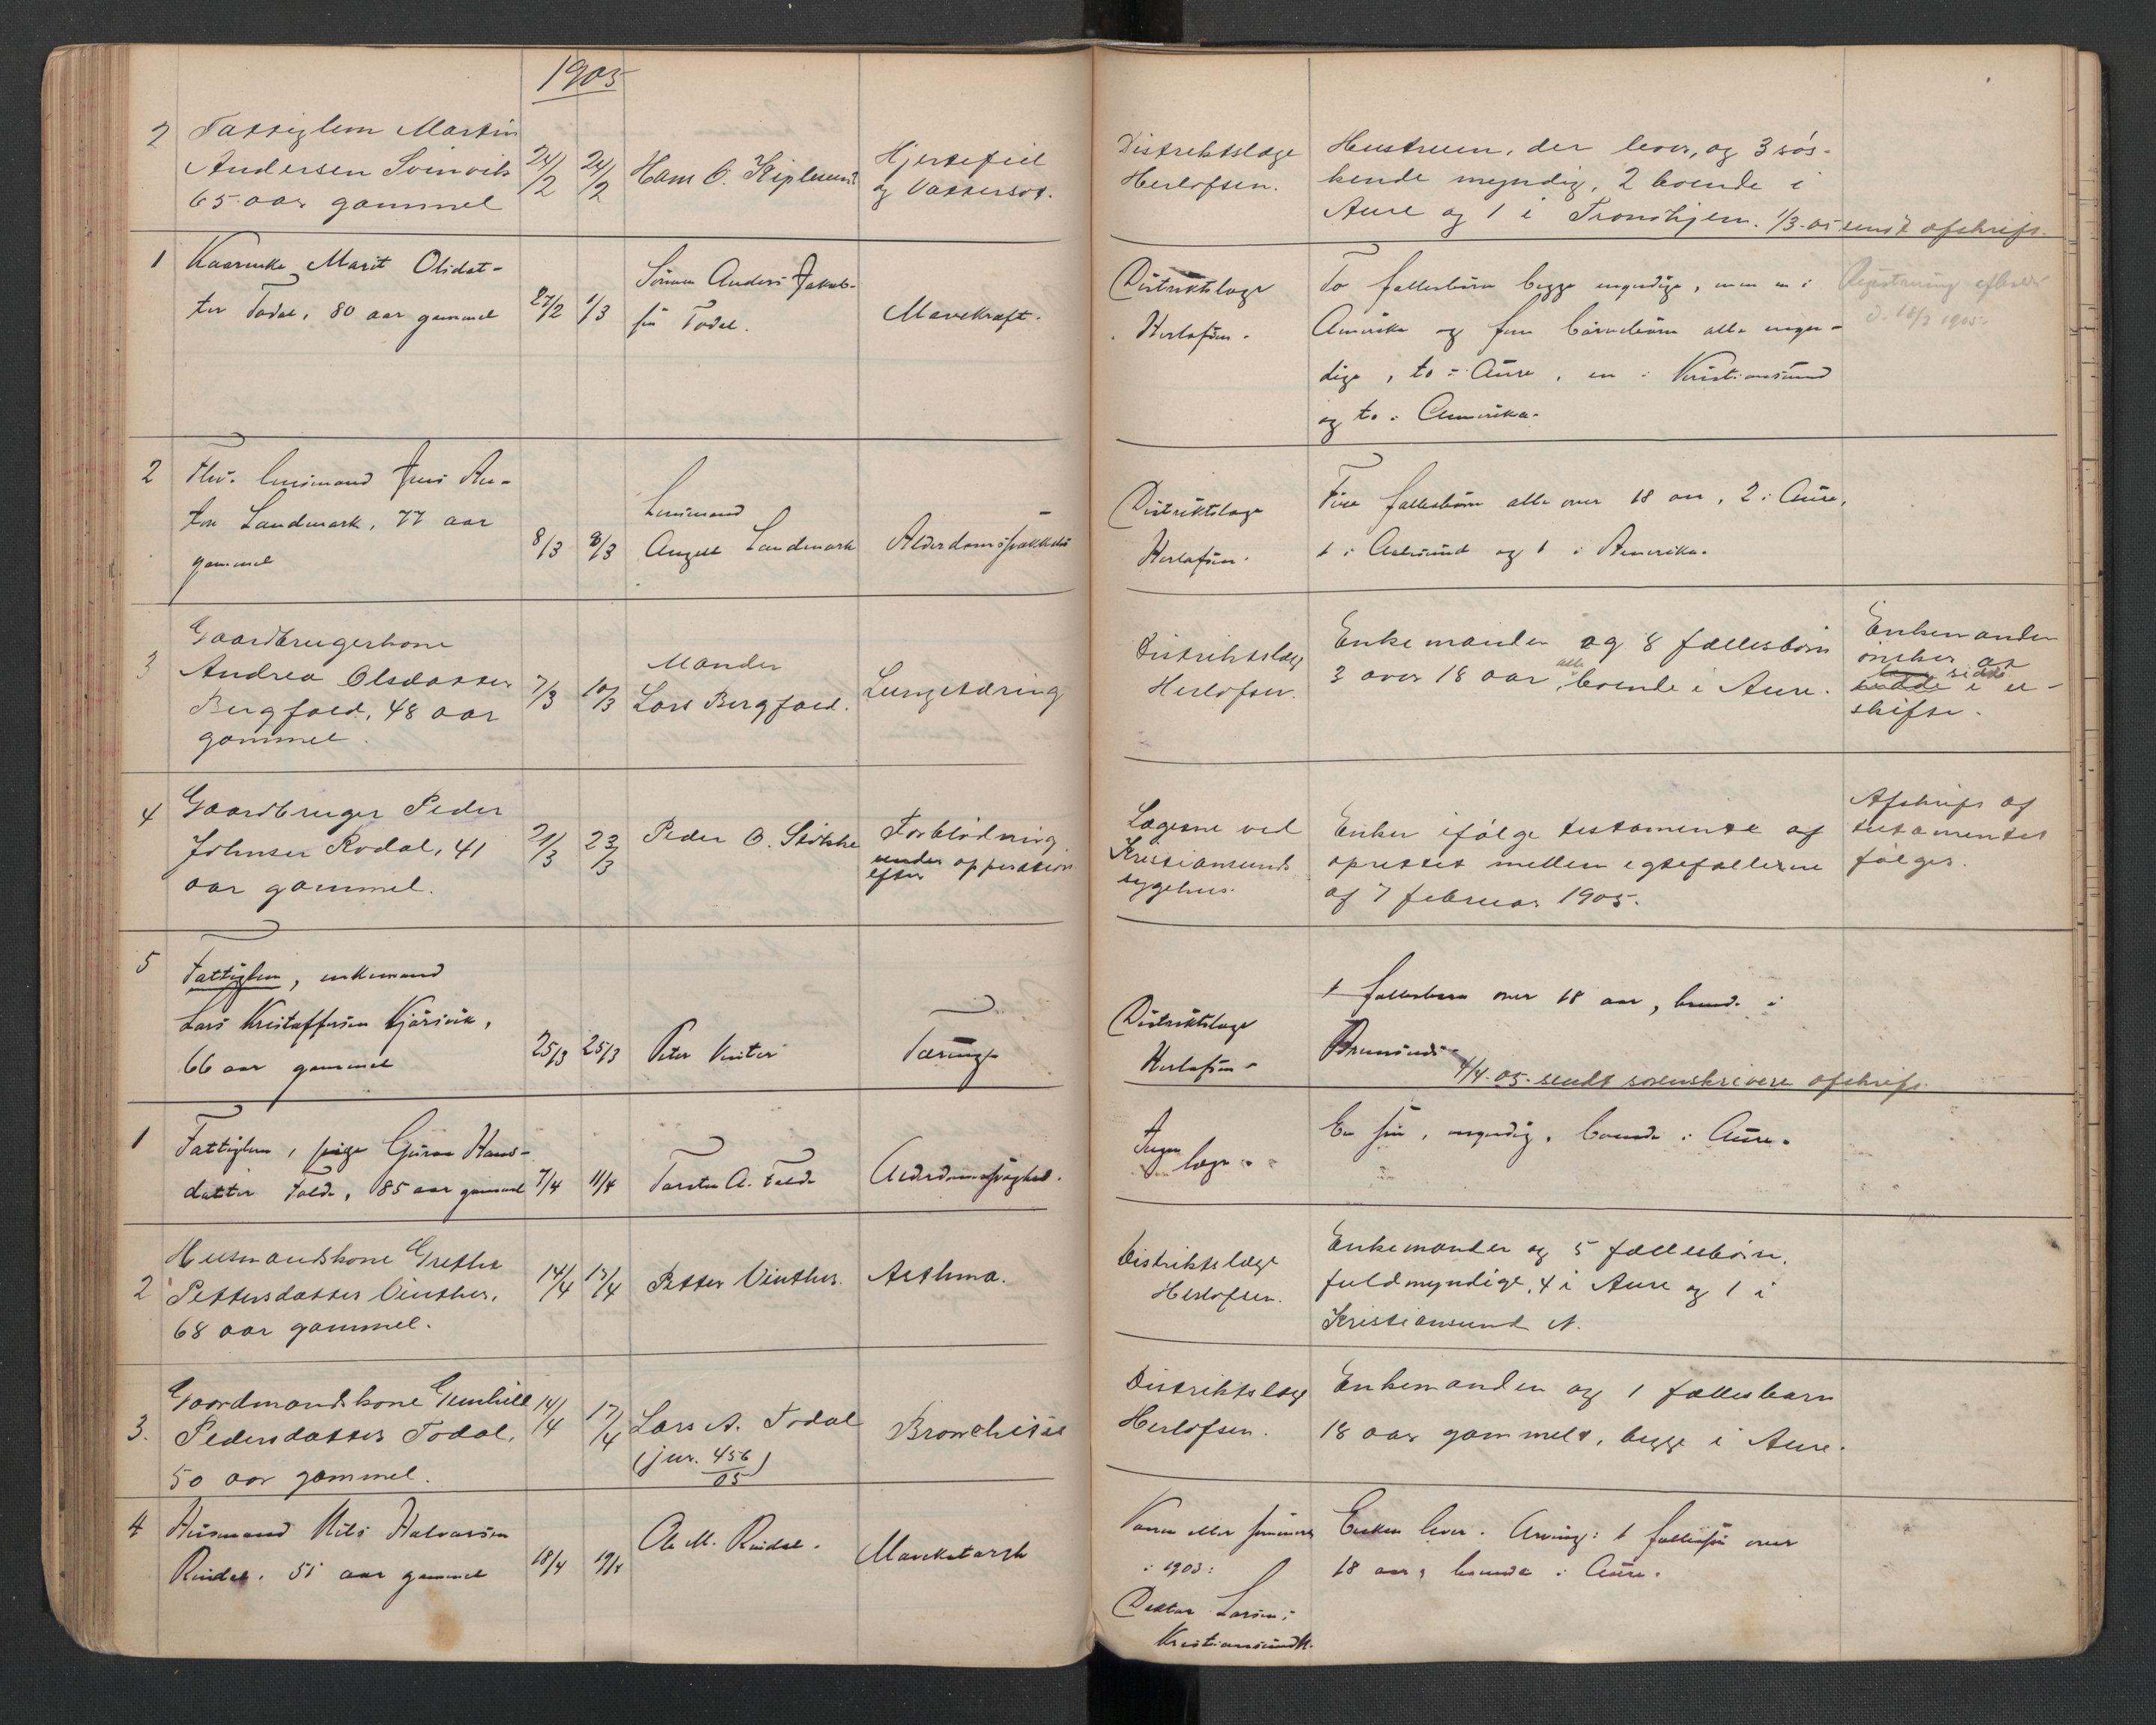 1905
2 Fattiglem Martin
Andersen Svinvik
65 aar gammel
24/2 24/2
Hans O.
Hjertefeil
og Vattersot.
Distriktslæge
Herlofsen.
Hustruen, der lever, og 3 søs-
kende myndig, 2 boende i
Aure og 1 i Trondhjem. 1/3-05 sendt afskrift.
1 Kaarenke Marit Olsdat-
ter Todal, 80 aar gammel
27/2 1/3
Sønnen Anders Jakob-
sen Todal.
Mavekræft.
Distriktslæge
Herlofsen.
To fællesbørn begge myndige, men en i
Amerika og fem børnebørn alle myn-
dige, to i Aure, en i Kristiansund
og to i Amerika.
Registrering afholdt
d. 18/3 1905.
2 Fhv. lensmand Jens An-
ton Landmark, 77 aar
gammel
8/3 8/3
Lensmand
August Landmark
Alderdomssvækkelse
Distriktslæge
Herlofsen.
Fire fællesbørn alle over 18 aar, 2 i Aure,
1 i Aalesund og 1 i Amerika.
3 Gaardbrugerkone
Andrea Olsdatter
Bergfald, 48 aar
gammel.
7/3 10/3
Manden
Lars Bergfald.
Lungetæring
Distriktslæge
Herlofsen.
Enkemanden og 8 fællesbørn
3 over 18 aar, alle boende i Aure.
Enkemanden
ønsker at
sidde i u-
skifte.
4 Gaardbruger Peder
Johnsen Rodal, 41
aar gammel.
21/3 23/3
Peder O. Stokke
Forblødning
under opperation
efter
Lægerne ved
Kristiansunds
sygehus.
Enken ifølge testamente af
oprettet mellem egtefællerne
af 7 februar 1905.
Afskrift af
testamentet
følger.
5 Fattiglem, enkemand
Lars Kristoffersen Kjørsvik,
66 aar gammel
25/3 25/3
Peter Vinter
Tæring
Distriktslæge
Herlofsen.
1 fællesbarn over 18 aar, boende i
1/4-05 sendt sorenskriveren afskrift.
1 Fattiglem, pige Guru Hans-
datter Folde, 85 aar gammel
7/4 11/4
Torsten A. Folde
Alderdomssvaghed.
Ingen
læge.
En søn, myndig, boende i Aure.
2 Husmandskone Grethe
Pettersdatter Vinther,
68 aar gammel.
14/4 15/4
Petter Vinther.
Asthma.
Distriktslæge
Herlofsen.
Enkemanden og 5 fællesbørn,
fuldmyndige, 4 i Aure og 1 i
Kristiansund N.
3. Gaardmandskone Gunhild
Pedersdatter Todal,
50 aar gammel.
14/4 17/4
Lars A. Todal
(jur. 456/05)
Bronchitis
Distriktslæge
Herlofsen.
Enkemanden og 1 fællesbarn
18 aar gammelt, begge i Aure.
4 Husmand Nils Halvorsen
Rindal. 51 aar gammel
18/4 19/4
Ole M. Rindal.
Mavekatarrh
Vaaren eller sommeren
i 1903:
Doktor Larsen,
Kristiansund N.
Enken lever. Arving: 1 fællessøn over
18 aar, boende i Aure.